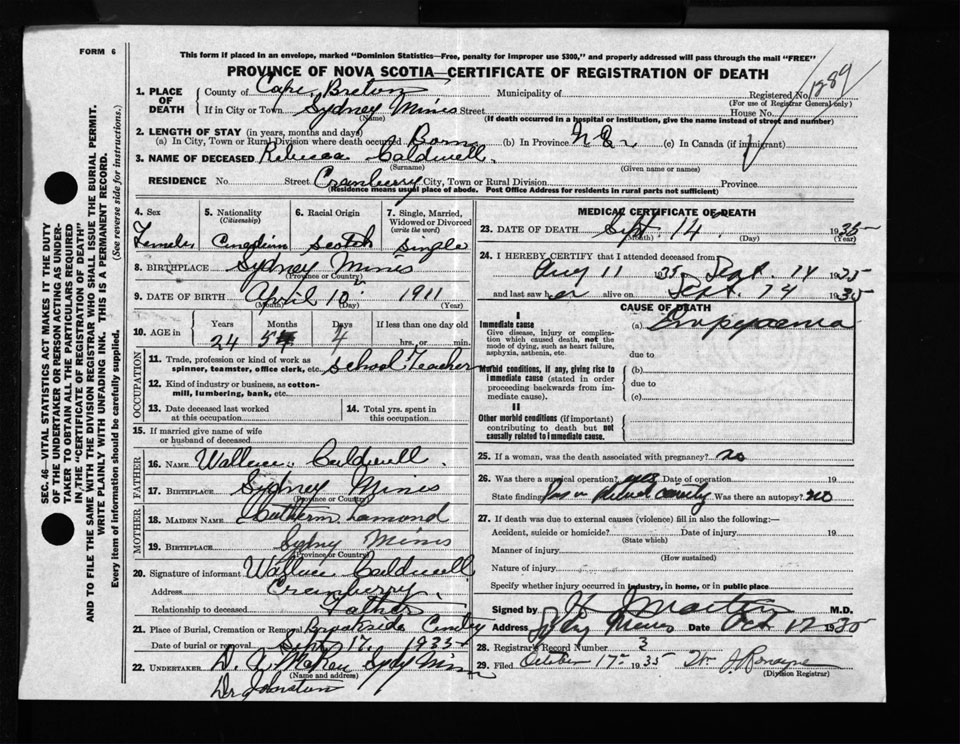 FORM 6
This form if placed in an envelope, marked "Dominion Statistics—Free, penalty for improper use $300," and properly addressed will pass through the mail "FREE"
PROVINCE OF NOVA SCOTIA—CERTIFICATE OF REGISTRATION OF DEATH
1289
1. PLACE OF DEATH
County of Cape Breton Municipality of Registered No.
(For use of Registrar General only)
If in City or Town Sydney Mines Street House No.
(Name) (If death occurred in a hospital or institution, give the name instead of street and number)
2. LENGTH OF STAY (in years, months and days)
(a) In City, Town or Rural Division where death occurred Born (b) In Province (c) In Canada (if immigrant)
3. NAME OF DECEASED Rebecca Caldwell
(Surname) (Given name or names)
RESIDENCE No. Street Cranberry City, Town or Rural Division Province
(Residence means usual place of abode. Post Office Address for residents in rural parts not sufficient)
4. Sex
Female
5. Nationality
(Citizenship)
Canadian
6. Racial Origin
Scotch
7. Single, Married, Widowed or Divorced
(write the word)
Single
8. BIRTHPLACE Sydney Mines
(Province or Country)
9. DATE OF BIRTH April 10th 1911
(Month) (Day) (Year)
10. AGE in
Years Months Days If less than one day old
24 5 4 hrs. or min.
OCCUPATION
11. Trade, profession or kind of work as spinner, teamster, office clerk, etc. School Teacher
12. Kind of industry or business, as cotton-mill, lumbering, bank, etc.
13. Date deceased last worked at this occupation
14. Total yrs. spent in this occupation
15. If married give name of wife or husband of deceased
FATHER
16. NAME Wallace Caldwell
17. BIRTHPLACE Sydney Mines
(Province or Country)
MOTHER
18. MAIDEN NAME Lamond
19. BIRTHPLACE Sydney Mines
(Province or Country)
20. Signature of informant Wallace Caldwell
Address Cranberry
Relationship to deceased Father
21. Place of Burial, Cremation or Removal Brookside
Date of burial or removal Sept 17, 1935
22. UNDERTAKER D.
(Name and address)
Dr Johnston
MEDICAL CERTIFICATE OF DEATH
23. DATE OF DEATH Sept. 14 1935
(Month) (Day) (Year)
24. I HEREBY CERTIFY that I attended deceased from
Aug 11 1935 Sept. 14 1935
and last saw her alive on Sept. 14 1935
CAUSE OF DEATH
I
Immediate cause
Give disease, injury or complication which caused death, not the mode of dying, such as heart failure, asphyxia, asthenia, etc.
(a) Empyema
due to
Morbid conditions, if any, giving rise to immediate cause (stated in order proceeding backwards from immediate cause).
(b)
due to
(c)
II
Other morbid conditions (if important) contributing to death but not causally related to immediate cause.
25. If a woman, was the death associated with pregnancy? no
26. Was there a surgical operation? yes Date of operation 19
State finding Was there an autopsy? no
27. If death was due to external causes (violence) fill in also the following:—
Accident, suicide or homicide? Date of injury 19
(State which)
Manner of injury
(How sustained)
Nature of injury
Specify whether injury occurred in industry, in home, or in public place
Signed by M.D.
Address Sydney Mines Date Oct 17 1935
28. Registrar's Record Number 3
29. Filed October 17th 1935
(Division Registrar)
SEC. 46—VITAL STATISTICS ACT MAKES IT THE DUTY
OF THE UNDERTAKER OR PERSON ACTING AS UNDER-
TAKER TO OBTAIN ALL THE PARTICULARS REQUIRED
IN THE "CERTIFICATE OF REGISTRATION OF DEATH"
AND TO FILE THE SAME WITH THE DIVISION REGISTRAR WHO SHALL ISSUE THE BURIAL PERMIT.
WRITE PLAINLY WITH UNFADING INK. THIS IS A PERMANENT RECORD.
Every item of information should be carefully supplied. (See reverse side for instructions.)